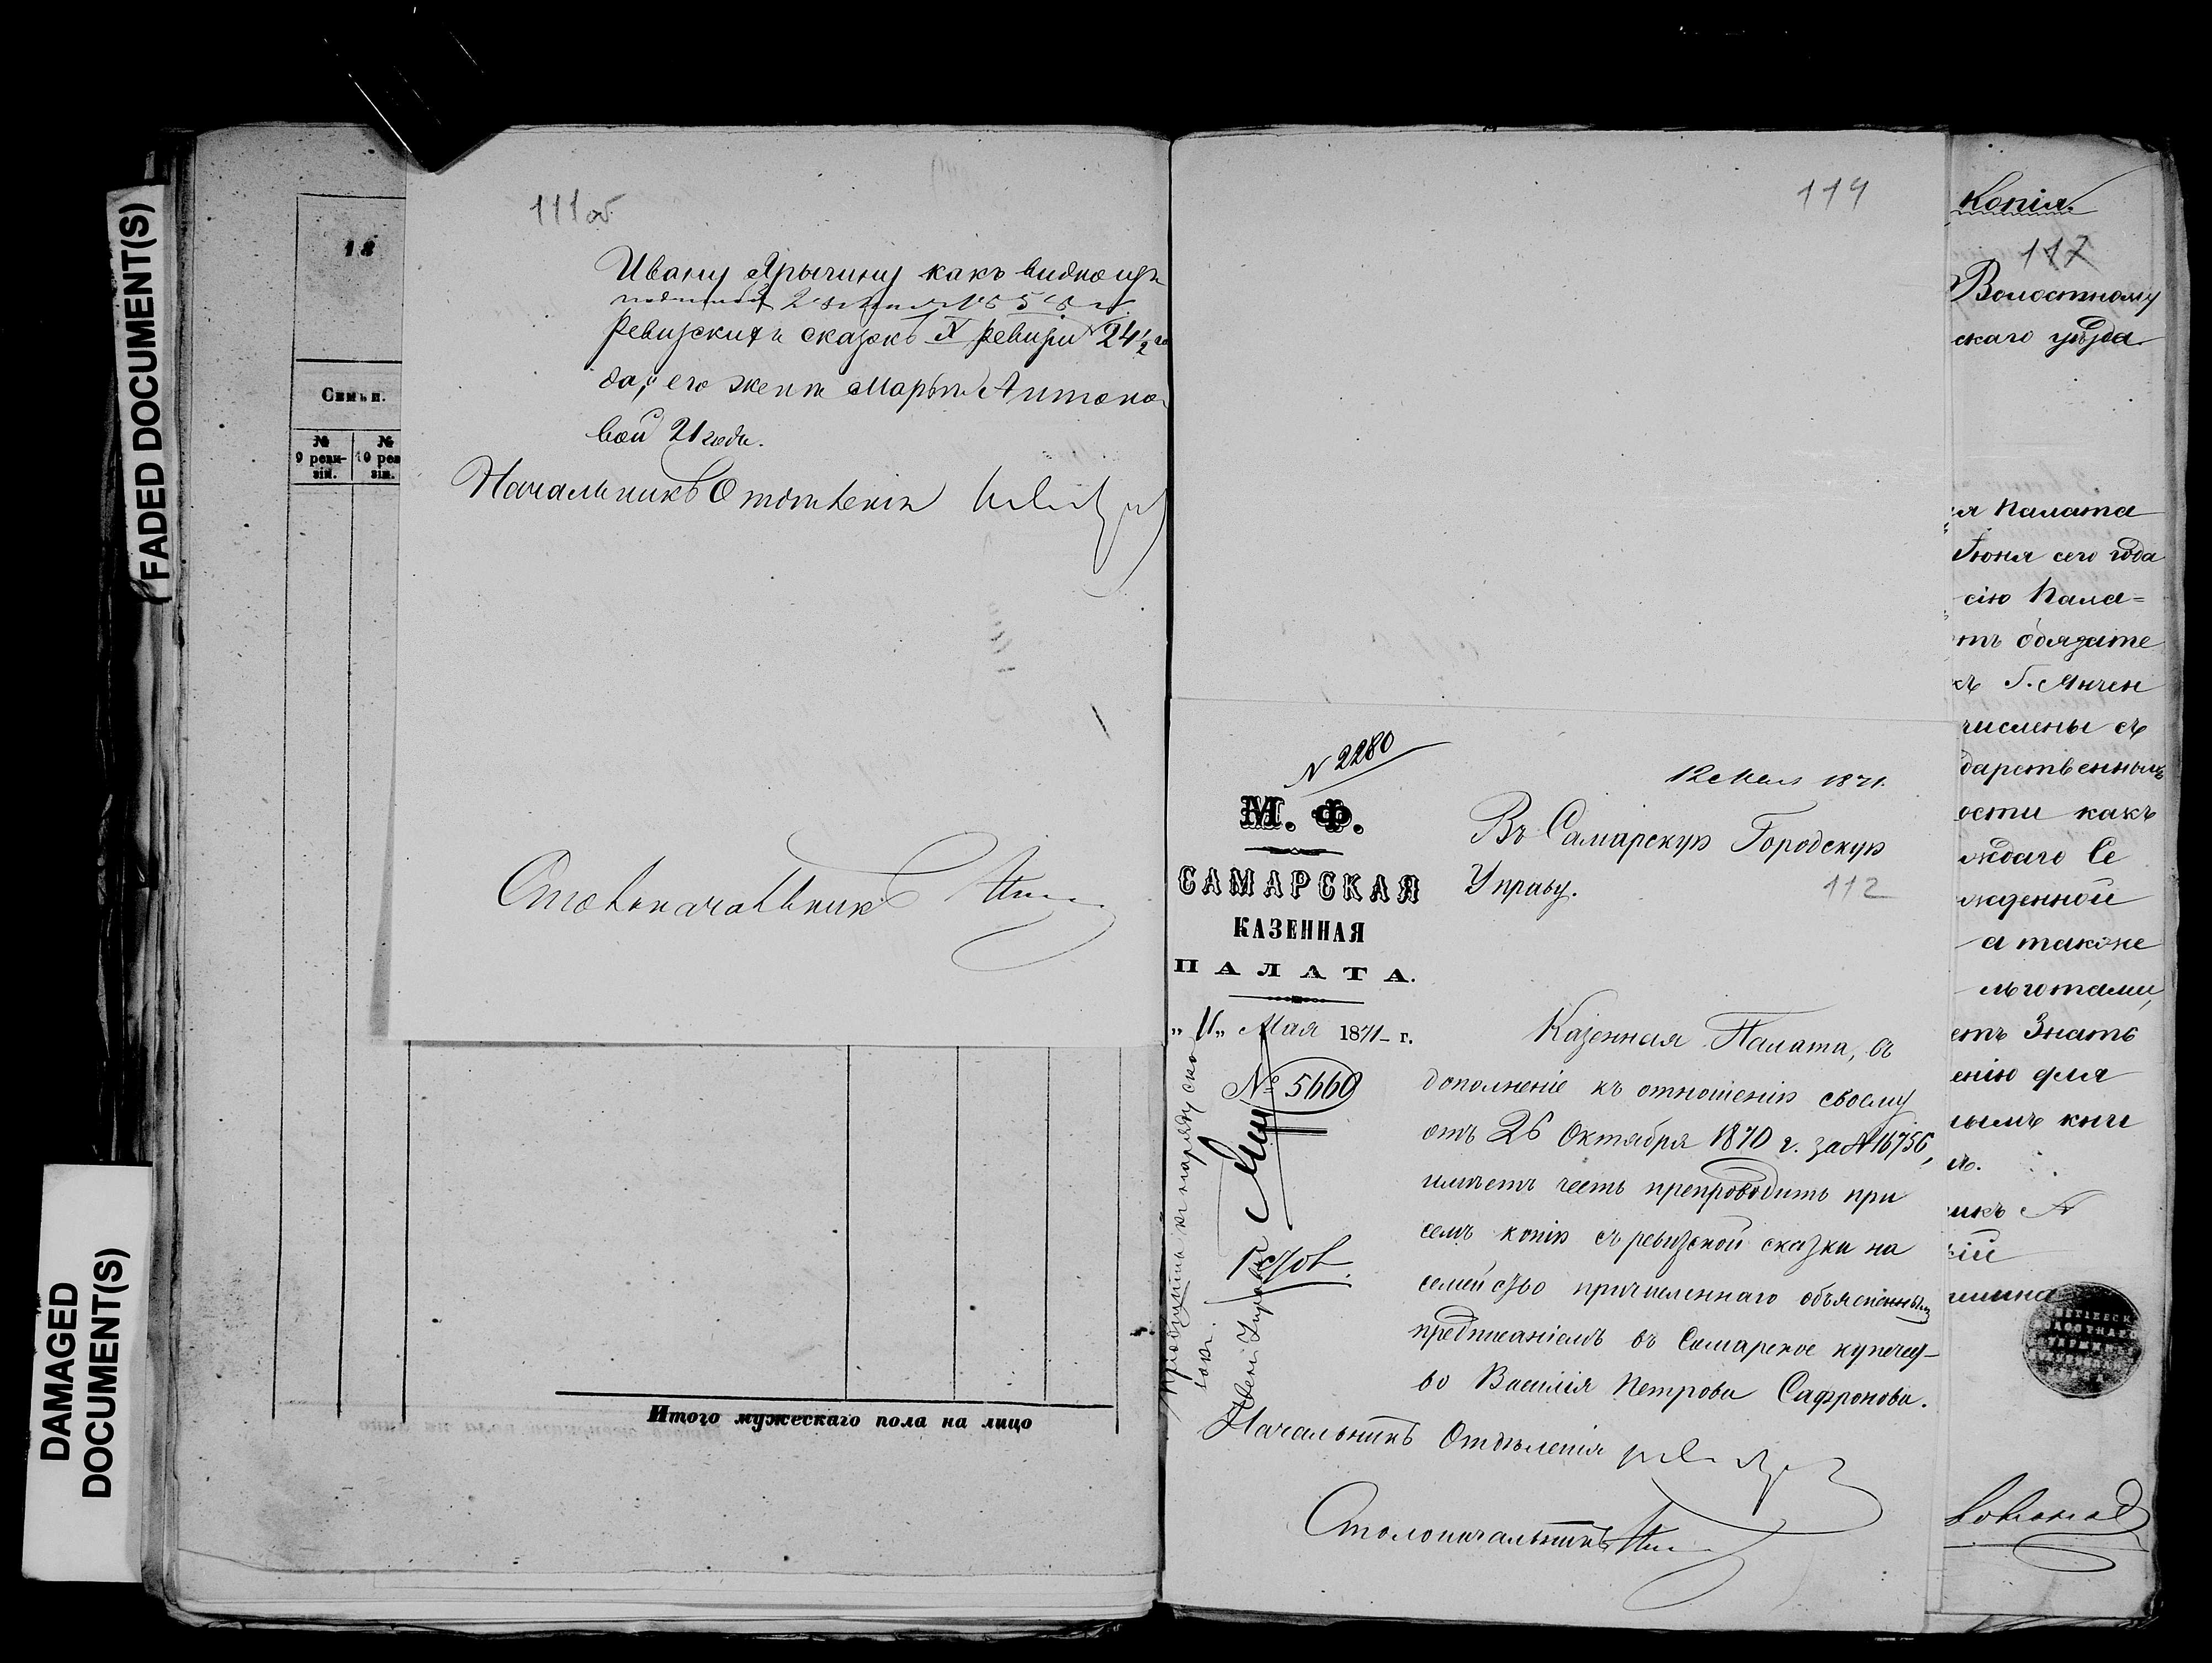 FADED DOCUMENT(S)
DAMAGED
DOCUMENT(S)
18
Семьи.
№
9 реви-
зіи.
№
10 рев
зіи.
111об
Ивану Ярыгину какъ видно изъ
ревизскихъ сказокъ X ревизіи 24½ го
да, его жене Марьѣ Антоно
вой 21 года.
Начальникъ Отдѣленія
Столоначальникъ
Итого мужескаго пола на лицо
114
N 2280
12 Мая 1871.
М. Ф.
САМАРСКАЯ
КАЗЕННАЯ
ПАЛАТА.
„11„ Мая 1871 г.
№ 5660
Въ Самарскую Городскую
Управу.
112
Казенная Палата, въ
дополненіе къ отношенію своему
отъ 26 Октября 1870 г. за N 16756,
имѣетъ честь препроводить при
семъ копію съ ревизской сказки на
семейство причисленнаго объясненнымъ
предписаніемъ въ Самарское купечест-
во Василія Петрова Сафронова.
Начальникъ Отдѣленія
Столоначальникъ
Пріобщить къ наряду
Членъ Управы
Копія.
117
Волостному
скаго уѣзда
я Палата
Іюня сего года
сію Пала=
тъ обязате
къ Г. Янчен
числены съ
дарственнымъ
ости какъ
ждаго Се
а также
льготами,
етъ Знать
енію для
нымъ кни
икъ А
кій